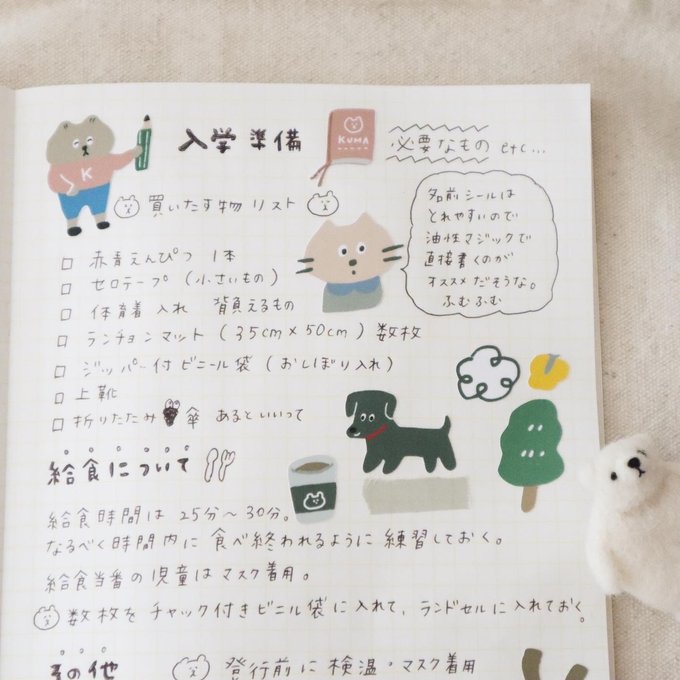 入学準備
KUMA
必要なもの etc...
K
買いたす物リスト
名前シールは
とれやすいので
油性マジックで
直接書くのが
オススメだそうな。
ふむふむ
□ 赤青えんぴつ 1本
□ セロテープ (小さいもの)
□ 体育着入れ 背負えるもの
□ ランチョンマット (35cm×50cm) 数枚
□ ジッパー付ビニール袋 (おしぼり入れ)
□ 上靴
□ 折りたたみ傘 あるといいって
給食について
給食時間は 25分〜30分。
なるべく時間内に食べ終われるように練習しておく。
給食当番の児童はマスク着用。
数枚をチャック付きビニル袋に入れて、ランドセルに入れておく。
その他
登行前に検温・マスク着用